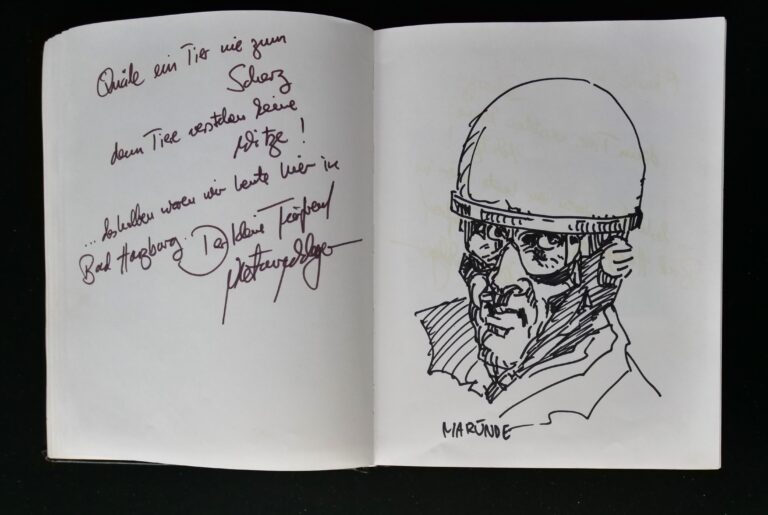 Quäle ein Tier nie zum
Scherz
denn Tiere verstehen keine
Witze!
...deshalben waren wir heute hier in
Bad Harzburg. Der kleine Tierfreund
MARUNDE